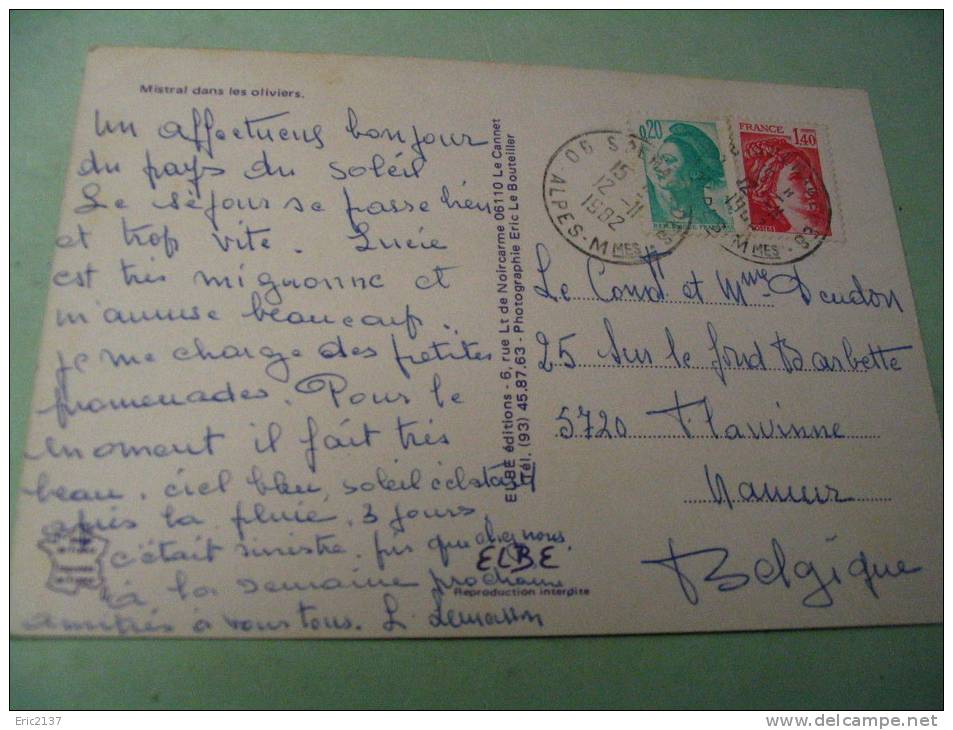 Mistral dans les oliviers.
Un affectueux bonjour
du pays du soleil
Le séjour se passe bien
et trop vite. Lucie
est très mignonne et
m'amuse beaucoup.
je me charge des petites
promenades. Pour le
moment il fait très
beau, ciel bleu, soleil éclatant
après la pluie. 3 jours
c'était sinistre, pis que chez nous.
à la semaine prochaine
amitiés à vous tous. L. Lemasson
ELBE
Reproduction interdite
ELBÉ éditions - 6, rue Lt de Noircarme 06110 Le Cannet
Tél. (93) 45.87.63 - Photographie Eric Le Bouteiller
0,20
FRANCE
1,40
15
12-11
1982
06 ALPES-MMES
Le Comdt et Mme Deudon
25 Sur le fond Barbette
5720 Flawinne
Namur
Belgique
Eric2137
www.delcampe.net